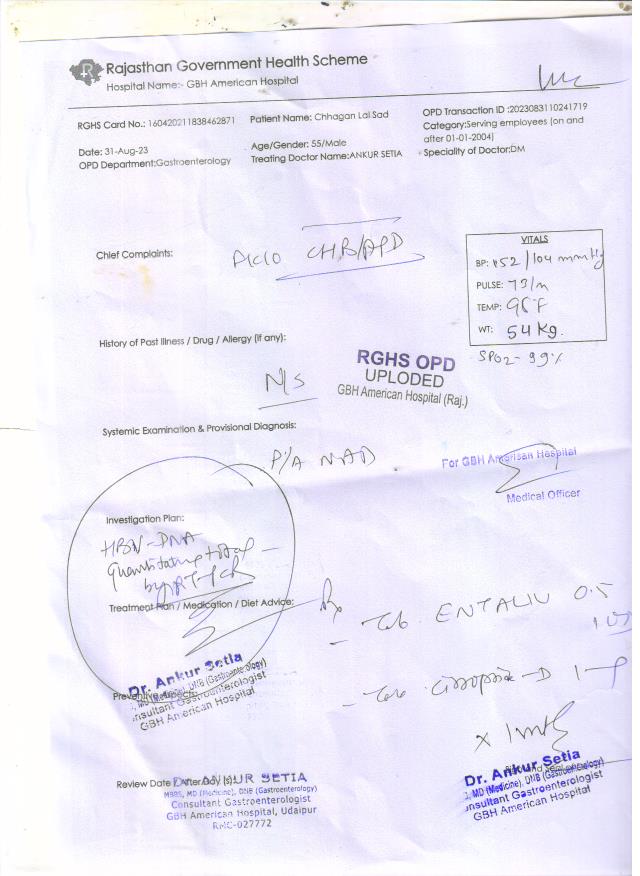 Rajasthan Government Health Scheme
Hospital Name:- GBH American Hospital
RGHS Card No.: 160420211838462871
Patient Name: Chhagan Lal Sad
OPD Transaction ID :2023083110241719
Category:Serving employees (on and
after 01-01-2004)
Date: 31-Aug-23
Age/Gender: 55/Male
OPD Department:Gastroenterology
Treating Doctor Name:ANKUR SETIA
Speciality of Doctor:DM
Chief Complaints:
CHB/APD
VITALS
BP: 152/104 mmHg
PULSE: 73/m
TEMP: 96°F
WT: 54 Kg.
SPO2- 99%
History of Past Illness / Drug / Allergy (if any):
N/S
RGHS OPD
UPLODED
GBH American Hospital (Raj.)
Systemic Examination & Provisional Diagnosis:
P/A NAD
For GBH American Hospital
Medical Officer
Investigation Plan:
HBV-DNA
Quantitative
by RT-PCR
Treatment Plan / Medication / Diet Advice:
Rx
- Tab ENTALIV 0.5
- Tab D
x 1
Dr. Ankur Setia
MD (Medicine), DNB (Gastroenterology)
Consultant Gastroenterologist
GBH American Hospital
Dr. Ankur Setia
MD (Medicine), DNB (Gastroenterology)
Consultant Gastroenterologist
GBH American Hospital
Review Date / After Day (s):
ANKUR SETIA
MBBS, MD (Medicine), DNB (Gastroenterology)
Consultant Gastroenterologist
GBH American Hospital, Udaipur
RMC-027772